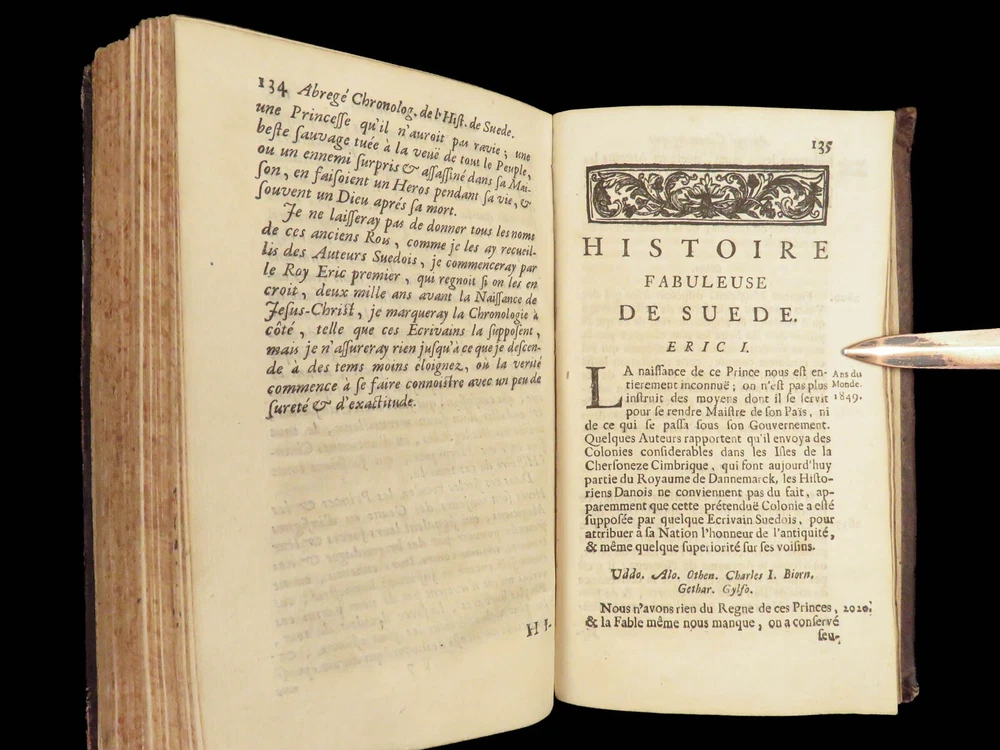 134 Abregé Chronolog. de l'Hist. de Suede.
une Princesse qu'il n'auroit pas ravie; une
beste sauvage tuée à la veuë de tout le Peuple,
ou un ennemi surpris & assassiné dans sa Mai-
son, en faisoient un Heros pendant sa vie, &
souvent un Dieu aprés sa mort.
Je ne laisseray pas de donner tous les noms
de ces anciens Rois, comme je les ay recueil-
lis des Auteurs Suedois, je commenceray par
le Roy Eric premier, qui regnoit si on les en
croit, deux mille ans avant la Naissance de
Jesus-Christ, je marqueray la Chronologie à
côté, telle que ces Ecrivains la supposent,
mais je n'assureray rien jusqu'à ce que je descen-
de à des tems moins éloignez, ou la verité
commence à se faire connoistre avec un peu de
sureté & d'exactitude.
HI-
135
HISTOIRE
FABULEUSE
DE SUEDE.
ERIC I.
LA naissance de ce Prince nous est en-
tierement inconnuë; on n'est pas plus
instruit des moyens dont il se servit
pour se rendre Maistre de son Païs, ni
de ce qui se passa sous son Gouvernement.
Quelques Auteurs rapportent qu'il envoya des
Colonies considerables dans les Isles de la
Chersoneze Cimbrique, qui sont aujourd'huy
partie du Royaume de Dannemarck, les Histo-
riens Danois ne conviennent pas du fait, ap-
paremment que cette prétenduë Colonie a esté
supposée par quelque Ecrivain Suedois, pour
attribuer à sa Nation l'honneur de l'antiquité,
& même quelque superiorité sur ses voisins.
Ans du
Monde.
1849.
Uddo. Alo. Othen. Charles I. Biorn.
Gethar. Gylfo.
Nous n'avons rien du Regne de ces Princes,
& la Fable même nous manque, on a conservé
2020.
seu-